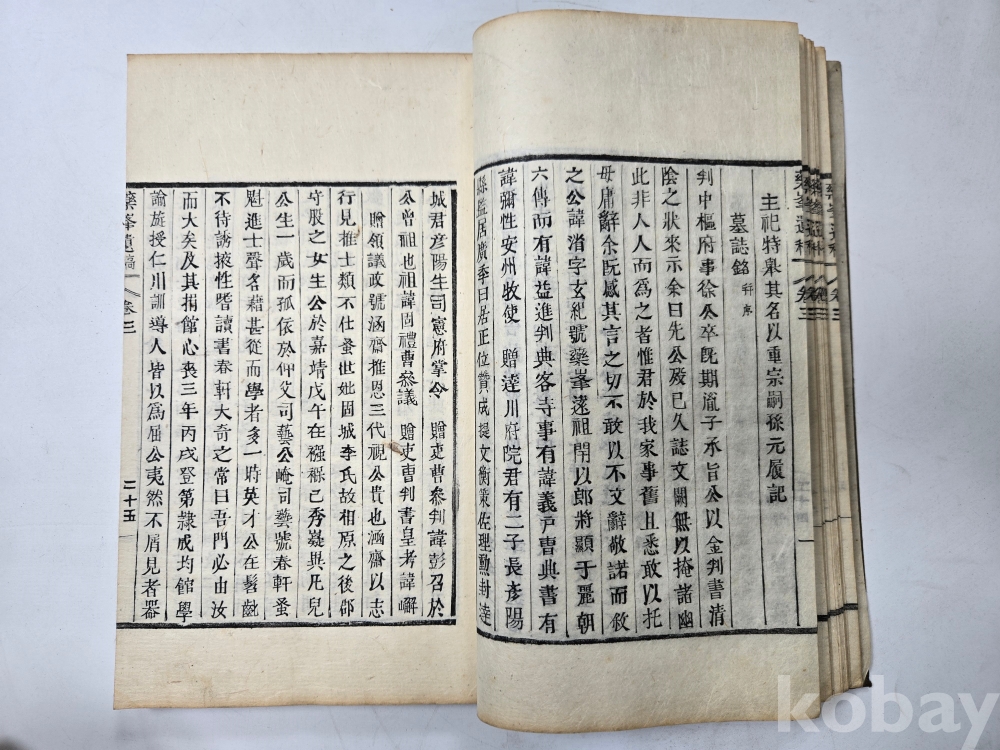 主祀特擧其名以重宗嗣孫元履記
墓誌銘 幷序
判中樞府事徐公卒旣期胤子承旨公以金判書清
陰之狀來示余曰先公歿已久誌文闕無以掩諸幽
此非人人而爲之者惟君於我家事舊且悉敢以托
毋庸辭余旣感其言之切不敢以不文辭敬諾而敘
之公諱渻字玄紀號藥峯遠祖閈以郎將顯于麗朝
六傳而有諱益進判典客寺事有諱義戶曹典書有
諱彌性安州牧使 贈達川府院君有二子長彥陽
縣監居廣季曰居正位贊成提文衡策佐理勳封達
城君彥陽生司憲府掌令 贈吏曹參判諱彭召於
公曾祖也祖諱固禮曹參議 贈吏曹判書皇考諱嶰
贈領議政號涵齋推恩三代視公貴也涵齋以志
行見推士類不仕蚤世妣固城李氏故相原之後郡
守股之女生公於嘉靖戊午在襁褓己秀嶷與凡兒
公生一歲而孤依於仲父司藝公崦司藝號春軒蚤
魁進士聲名藉甚從而學者多一時英才公在髫齔
不待誘掖性嗜讀書春軒大奇之常曰吾門必由汝
而大矣及其捐館心喪三年丙戌登第隷成均館學
諭旋授仁川訓導人皆以爲屈公夷然不屑見者器
藥峯遺稿 卷三 二十五
藥峯遺稿 卷三
藥峯遺稿 卷三